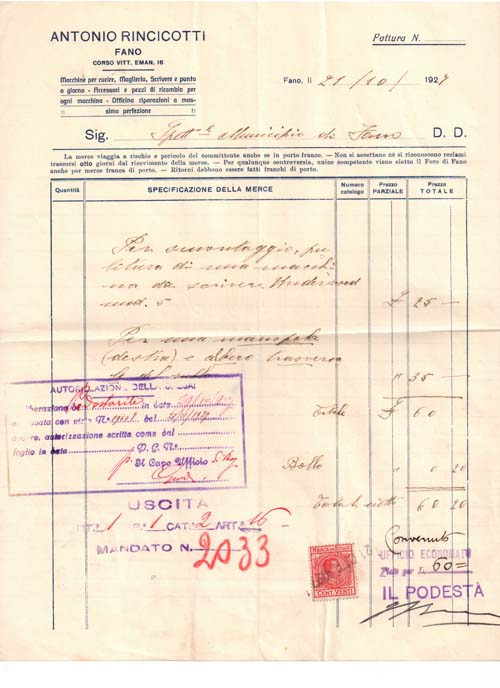 ANTONIO RINCICOTTI
FANO
CORSO VITT. EMAN. 16
Macchine per cucire, Maglieria, Scrivere e punto
a giorno - Accessori e pezzi di ricambio per
ogni macchina - Officina riparazioni a mas-
sima perfezione
Fattura N.
Fano, li 21/10/ 1927
Sig. Spett.le Municipio di Fano D. D.
La merce viaggia a rischio e pericolo del committente anche se in porto franco. — Non si accettano nè si riconoscono reclami
trascorsi otto giorni dal ricevimento della merce. — Per qualunque controversia, unico competente viene eletto il Foro di Fano
anche per merce franca di porto. — Ritorni debbono essere fatti franchi di porto.
Quantità SPECIFICAZIONE DELLA MERCE Numero catalogo Prezzo PARZIALE Prezzo TOTALE
Per smontaggio, pu-
litura di una macchi
na da scrivere Underwood
mod. 5 £ 25 —
Per una manopola
(destra) e albero trasversa
le " 35 —
Totale £ 60
AUTORIZZAZIONE DELLA
in data
con visto N° del
autorizzazione scritta come dal
foglio in data D. G. N°
p. Il Capo Ufficio
Bollo " 0 20
Totale 60 20
USCITA
1 1 CAT. 2 ART. 16
MANDATO N. 2033
MARCA DA BOLLO
CENT. VENTI
Convenuto
UFFICIO ECONOMATO
Visto per L. 60=
IL PODESTÀ